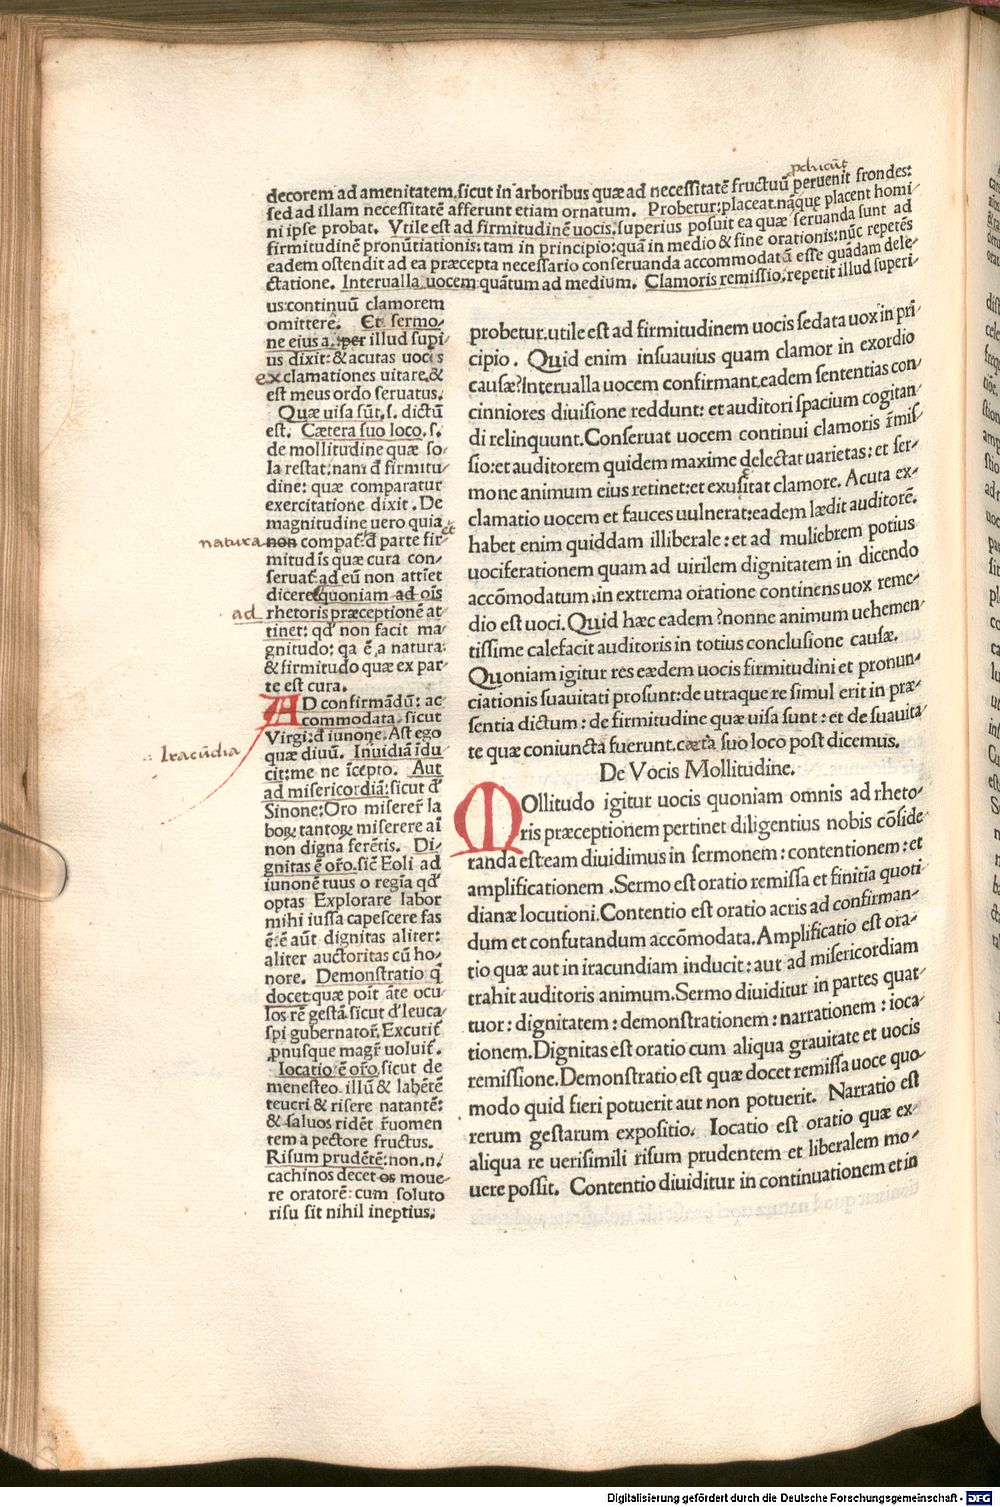 pducūt
decorem ad amenitatem.sicut in arboribus quæ ad necessitatē fructuū peruenit frondes:
sed ad illam necessitatē afferunt etiam ornatum. Probetur:placeat.nāque placent homi-
ni ipse probat. Vtile est ad firmitudinē uocis.superius posuit ea quæ seruanda sunt ad
firmitudinē pronūtiationis:tam in principio:quā in medio & fine orationis:nūc repetēs
eadem ostendit ad ea præcepta necessario conseruanda accommodatā esse quādam dele-
ctatione. Interualla uocem quātum ad medium. Clamoris remissio.repetit illud superi-
us:continuū clamorem
omittere. Et sermo-
ne eius a. per illud supi
us dixit:& acutas uocis
exclamationes uitare.&
est meus ordo seruatus.
Quæ uisa sūt.s. dictū
est. Cætera suo loco.s.
de mollitudine quæ so-
la restat:nam đ firmitu-
dine: quæ comparatur
exercitatione dixit. De
magnitudine uero quia et
natura non compat̄:đ parte fir
mitudīs quæ cura con-
seruat̄:ad eū non attīet
dicere quoniam ad oīs
ad rhetoris præceptionē at
tinet: qđ non facit ma-
gnitudo: qa ē a natura:
& firmitudo quæ ex par-
te est cura.
AD confirmādū: ac
commodata. sicut
Virgi:đ iunone. Ast ego
Iracūdia
quæ diuū. Inuidiā īdu
cit:me ne īcepto. Aut
ad misericordiā:sicut đ
Sinone:Oro miserer̄ la
boꝝ tantoꝝ miserere aī
non digna ferētis. Di-
gnitas ē or̄o.sic̄ Eoli ad
iunonē tuus o regīa qđ
optas Explorare labor
mihi iussa capescere fas
ē:ē aūt dignitas aliter:
aliter auctoritas cū ho-
nore. Demonstratio q̄
docet quæ poīt āte ocu-
los rē gestā.sicut đ leuca-
spi gubernator̄. Excutit̄
,pnusque magr̄ uoluit̄.
Iocatio ē or̄o.sicut de
menesteo. illū & labētē
teucri & risere natantē:
& saluos ridēt r̄uomen
tem a pectore fructus.
Risum prudētē:non.n.
cachinos decet os moue-
re oratorē: cum soluto
risu sit nihil ineptius.
probetur.utile est ad firmitudinem uocis sedata uox in pri
cipio. Quid enim insuauius quam clamor in exordio
causæ?Interualla uocem confirmant.eadem sententias con-
cinniores diuisione reddunt: et auditori spacium cogitan-
di relinquunt.Conseruat uocem continui clamoris r̄mis-
sio:et auditorem quidem maxime delectat uarietas: et ser-
mone animum eius retinet:et exusitat clamore. Acuta ex-
clamatio uocem et fauces uulnerat:eadem lædit auditorē.
habet enim quiddam illiberale : et ad muliebrem potius
uociferationem quam ad uirilem dignitatem in dicendo
accōmodatum.in extrema oratione continens uox reme-
dio est uoci. Quid hæc eadem ?nonne animum uehemen-
tissime calefacit auditoris in totius conclusione causæ.
Quoniam igitur res eædem uocis firmitudini et pronun-
ciationis suauitati prosunt:de utraque re simul erit in præ-
sentia dictum : de firmitudine quæ uisa sunt : et de suauita-
te quæ coniuncta fuerunt.cæt̄a suo loco post dicemus.
De Vocis Mollitudine.
MOllitudo igitur uocis quoniam omnis ad rheto-
ris præceptionem pertinet diligentius nobis cōside-
randa est:eam diuidimus in sermonem : contentionem : et
amplificationem .Sermo est oratio remissa et finitia quoti
dianæ locutioni.Contentio est oratio acris ad confirman-
dum et confutandum accōmodata.Amplificatio est ora-
tio quæ aut in iracundiam inducit : aut ad misericordiam
trahit auditoris animum.Sermo diuiditur in partes quat-
tuor : dignitatem : demonstrationem : narrationem : ioca-
tionem.Dignitas est oratio cum aliqua grauitate et uocis
remissione.Demonstratio est quæ docet remissa uoce quo-
modo quid fieri potuerit aut non potuerit. Narratio est
rerum gestarum expositio. Iocatio est oratio quæ ex-
aliqua re uerisimili risum prudentem et liberalem mo-
uere possit. Contentio diuiditur in continuationem et in
Digitalisierung gefördert durch die Deutsche Forschungsgemeinschaft - DFG